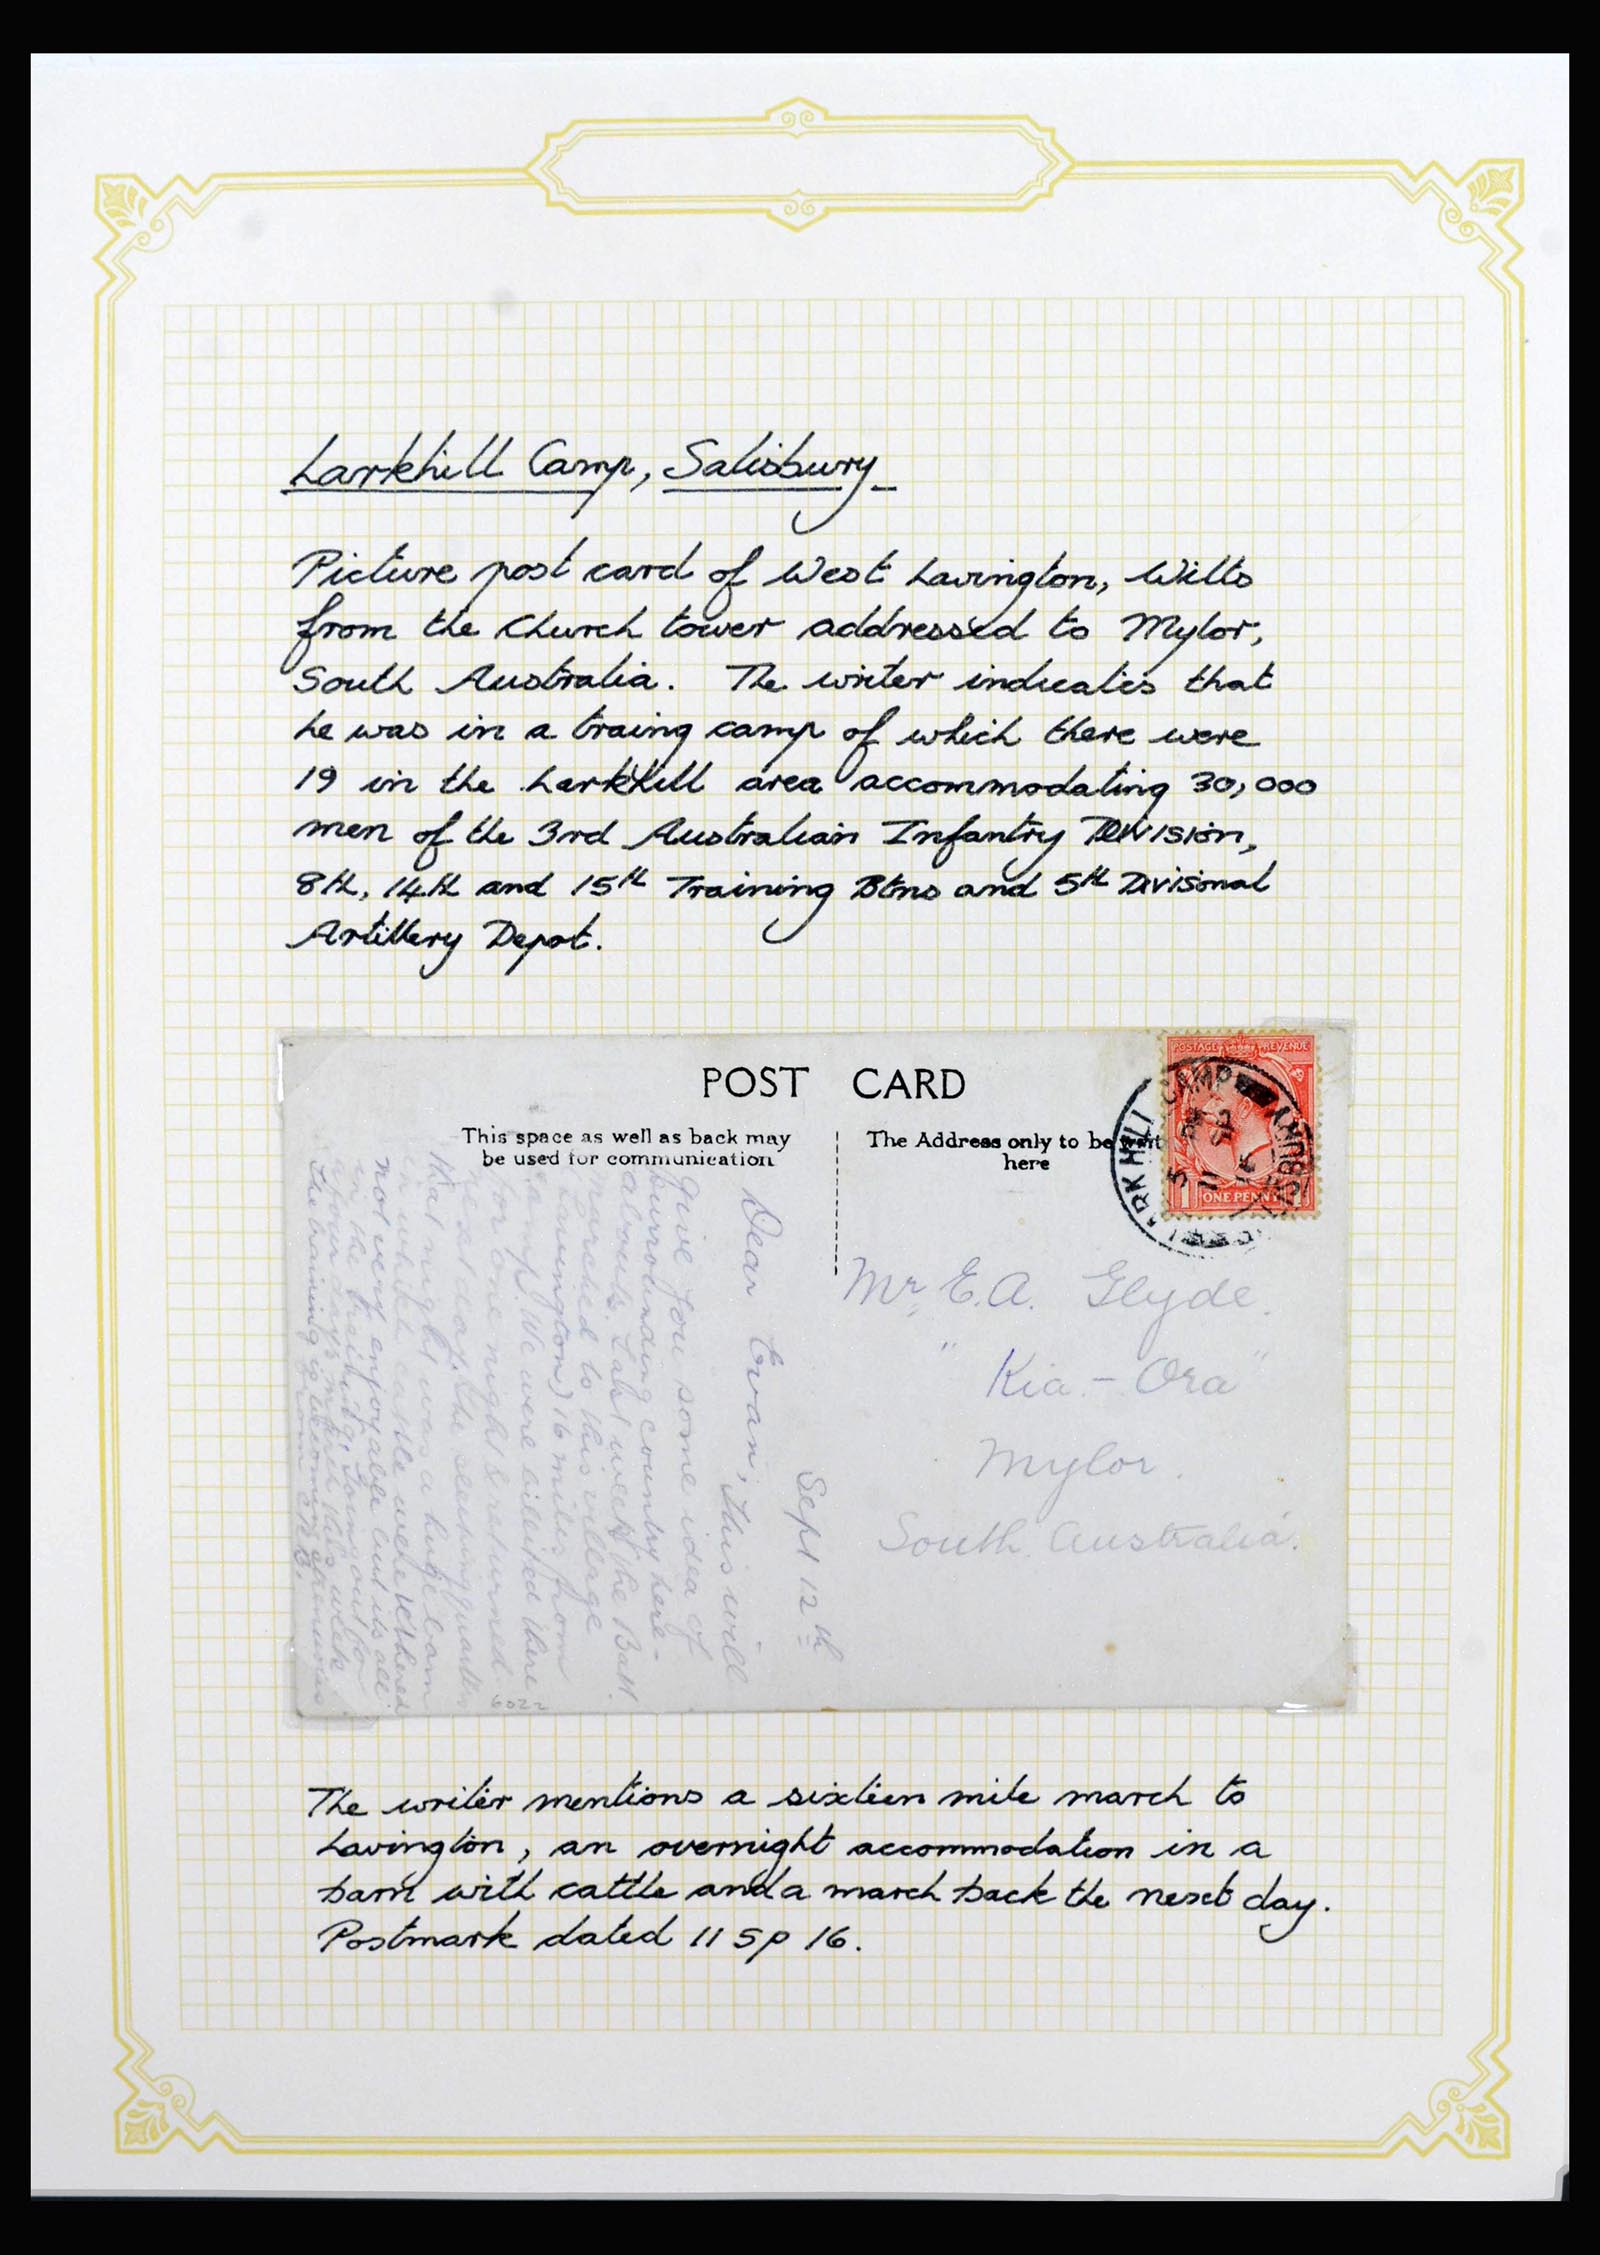 Larkhill Camp, Salisbury
Picture post card of West Lavington, Wilts
from the Church tower addressed to Mylor,
South Australia. The writer indicates that
he was in a traing camp of which there were
19 in the Larkhill area accommodating 30,000
men of the 3rd Australian Infantry Division,
8th, 14th and 15th Training Btns and 5th Divisional
Artillery Depot.
POST CARD
This space as well as back may
be used for communication
The Address only to be writ
here
POSTAGE REVENUE
ONE PENNY
LARK HILL CAMP SALISBURY
11 SP
16
Mr E.A. Glyde.
"Kia-Ora"
Mylor.
South Australia.
Sept 12th
Dear Evan, This will
give you some idea of
surrounding country here-
abouts. Last week the Batt.
marched to this village
(Lavington) 16 miles from
camp. We were billeted there
for one night & returned
next day. The sleeping quarters
that night was a huge barn
in which cattle were tethered
not very enjoyable but its all
in the training. Going out for
four days march this week
The training is becoming strenuous
from
6022
The writer mentions a sixteen mile march to
Lavington, an overnight accommodation in a
barn with cattle and a march back the next day.
Postmark dated 11 Sp 16.